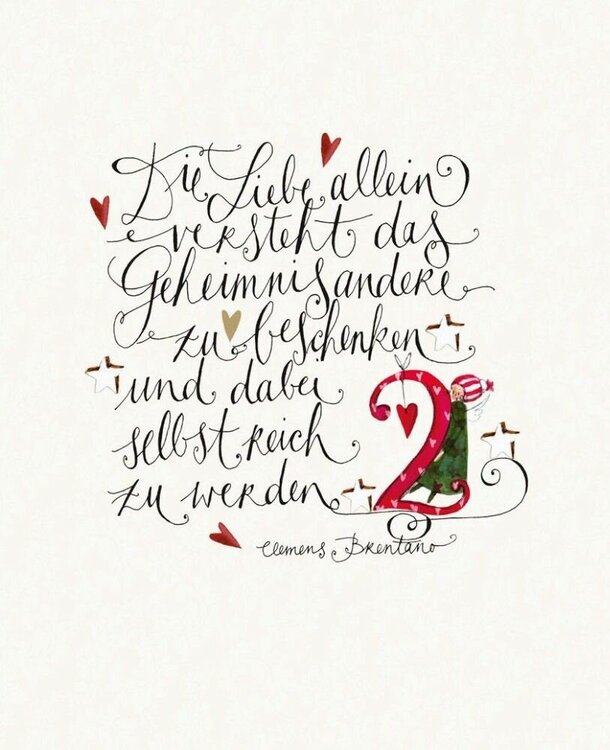 Die Liebe allein
versteht das
Geheimnis andere
zu beschenken
und dabei
selbst reich
zu werden
2
Clemens Brentano